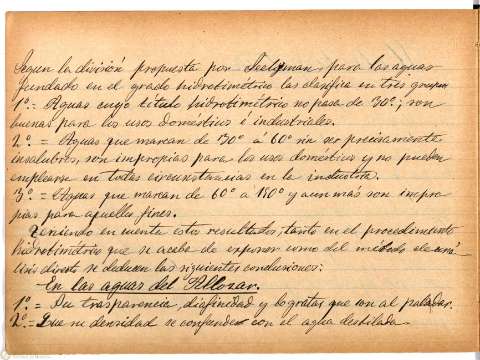 Segun la división propuesta por Seeligman para las aguas
fundado en el grado hidrotimétrico las clasifica en tres grupos
1º.= Aguas cuyo titulo hidrotimétrico no pasa de 30º; son
buenas para los usos domésticos é industriales.
2º. = Aguas que marcan de 30º á 60º sin ser precisamente
insalubres, son impropias para los usos domesticos y no pueden
emplearse en todas circunstancias en la industria.
3º = Aguas que marcan de 60º a 150º y aun más son impro
pias para aquellos fines.
Teniendo en cuenta estos resultados, tanto en el procedimiento
hidrotimétrico que se acaba de exponer como del método de aná
lisis directo se deducen las siguientes conclusiones:
En las aguas del
1º.= Su trasparencia, diafinidad y lo gratas que son al paladar.
2º.= Que su densidad se confunde con el agua destilada